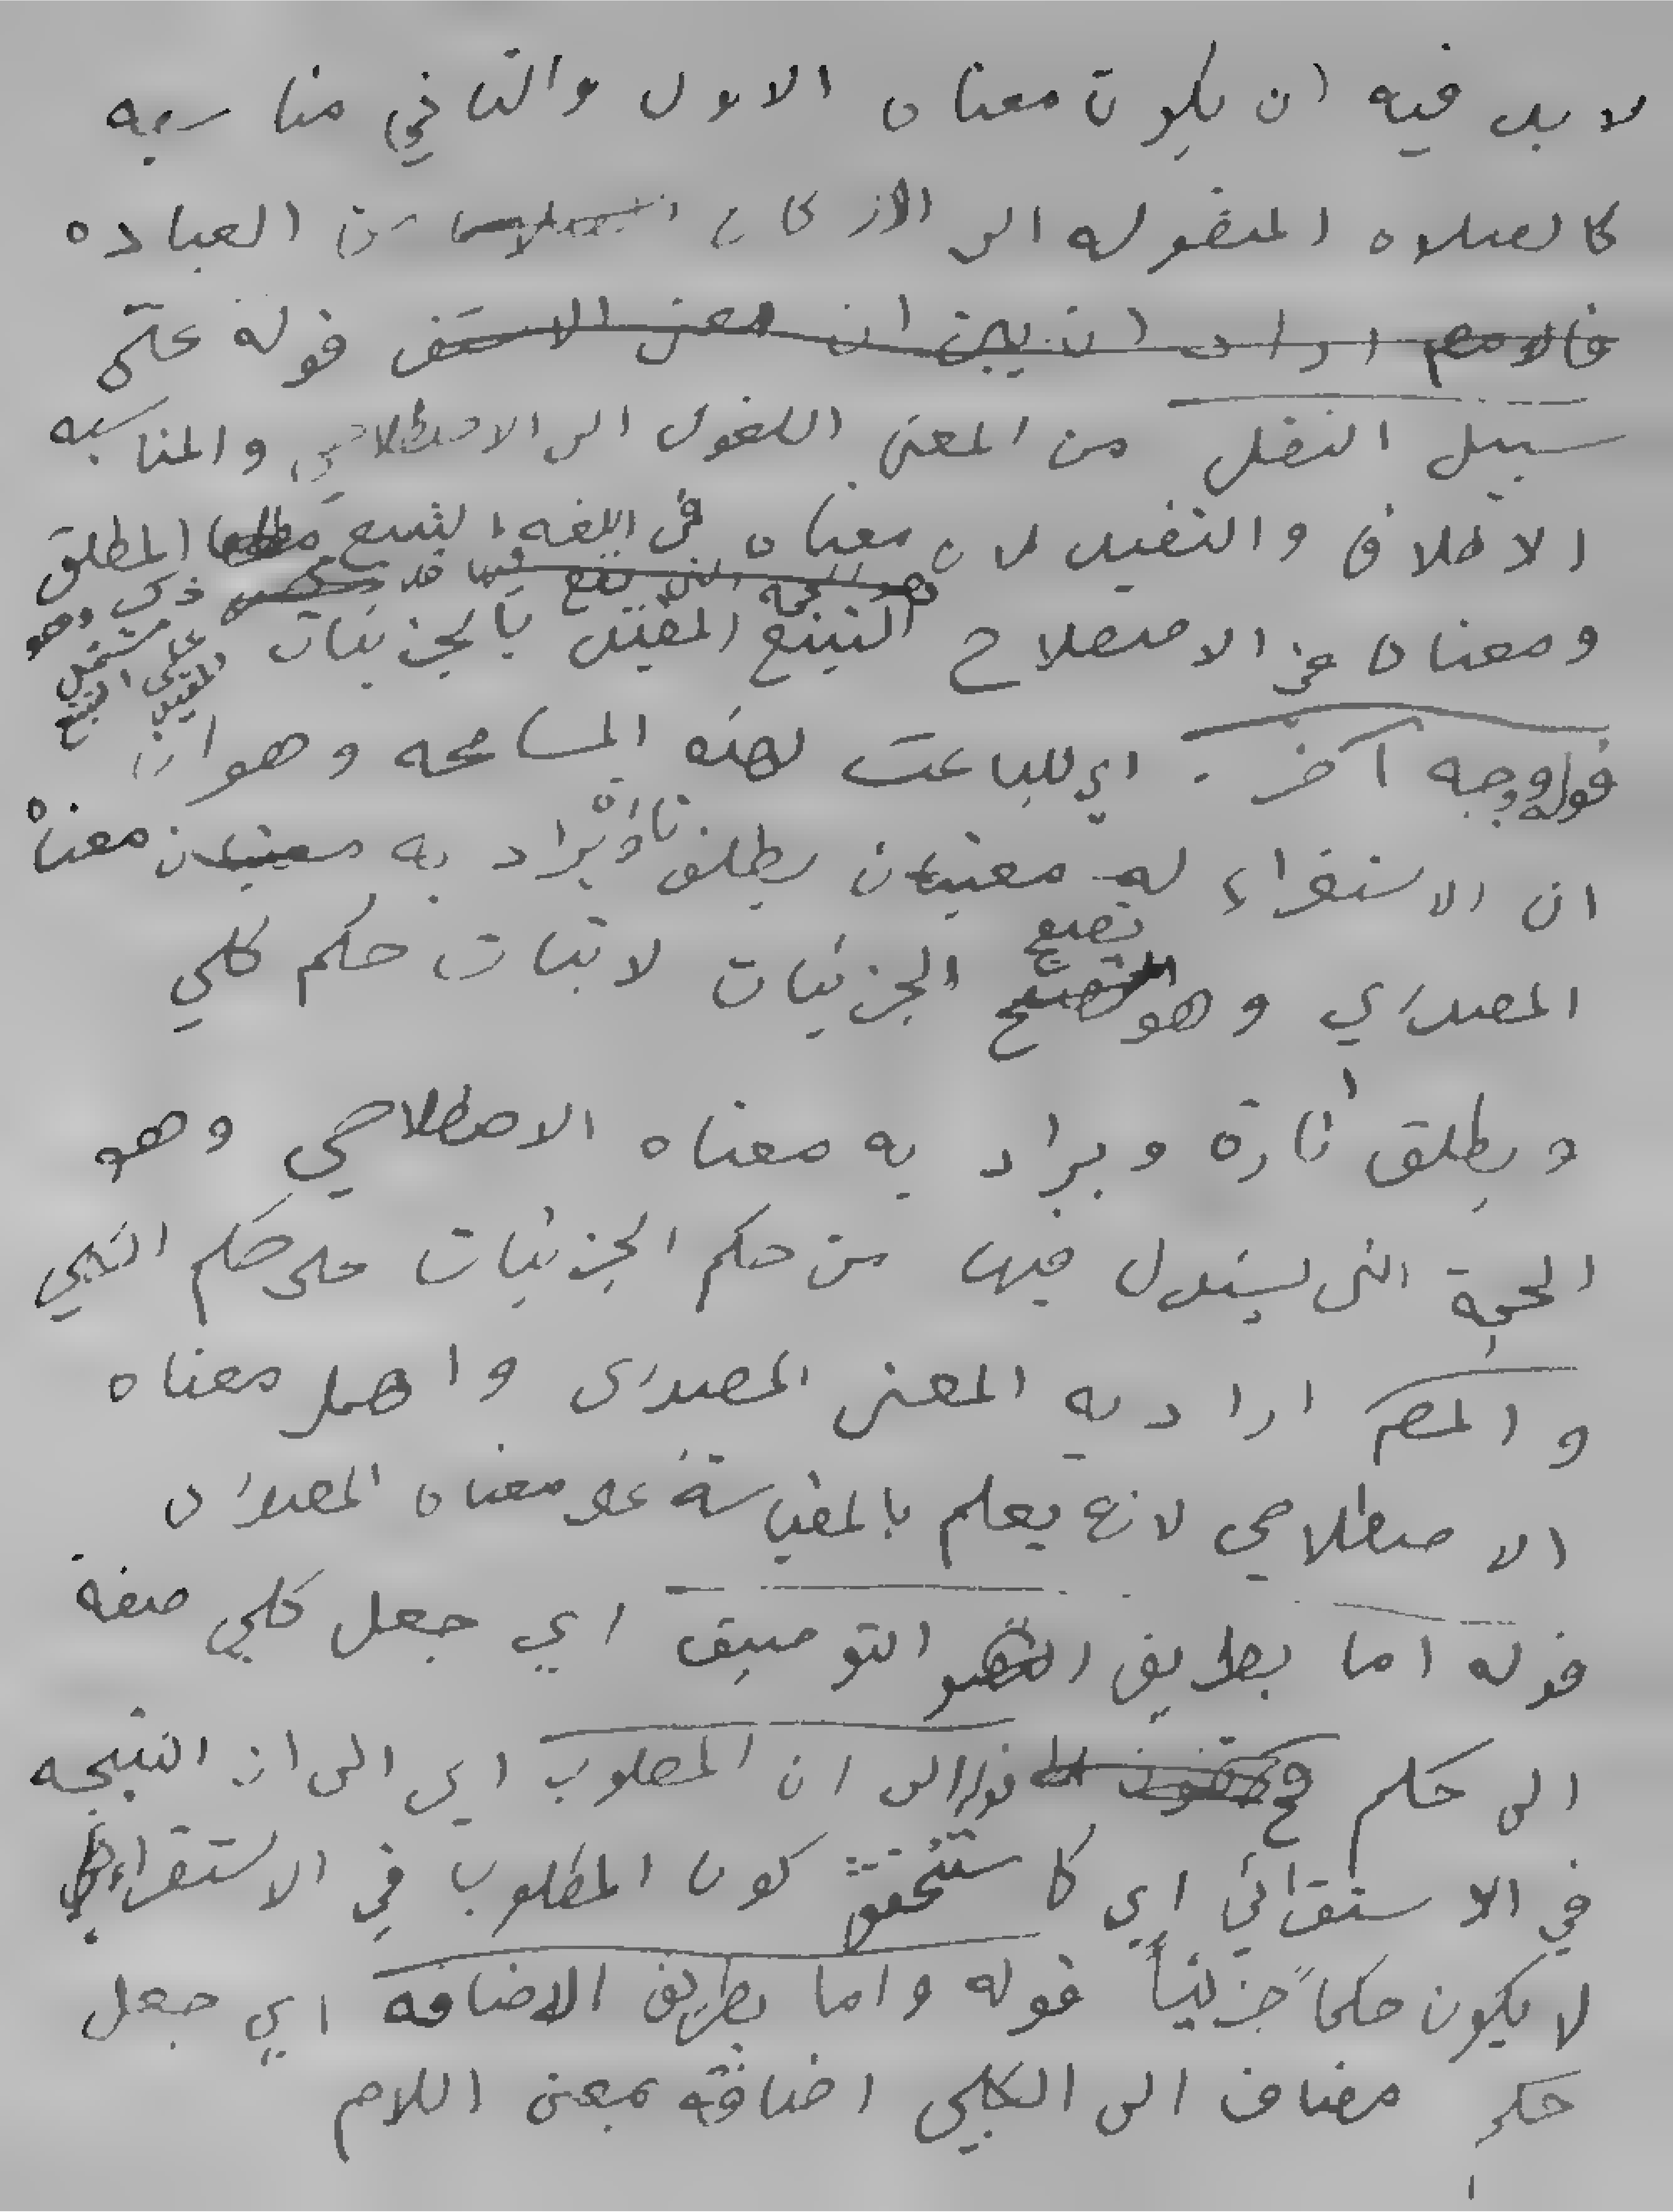 لا بد فيه ان يكون معناه الاول والثاني مناسبه
كالصلاه المنقوله الى الاركان من العباده
فالامص اراد ان يبين ان معنى الاستق قوله على
سبيل النقل من المعنى اللغوي الى الاصطلاحي والمناسبه
الاطلاق والتقييد لان معناه في اللغه التتبع المطلق
ومعناه في الاصطلاح التتبع المقيد بالجزئيات
ذكر وهو مشتمل على التتبع المقيد
قوله وجه آخر اي للباعث لهذه المسامحه وهو ان
ان الاستقراء له معنيان يطلق تارة يراد به معنيان معناه
المصدري وهو تصفح الجزئيات لاثبات حكم كلي
ويطلق تارة ويراد به معناه الاصطلاحي وهو
الحجة التي يستدل فيها من حكم الجزئيات على حكم الكلي
والمص اراد به المعنى المصدري واهمل معناه
الاصطلاحي لانه يعلم بالمقايسة على معناه المصدري
قوله اما بطريق التوصيف اي جعل كلي صفة
الى حكم قوله الى ان المطلوب اي الى ان النتيجه
في الاستقرائي اي كاستحقق كون المطلوب في الاستقراء
لا يكون حكماً جزئياً قوله واما بطريق الاضافه اي جعل
حكم مضاف الى الكلي اضافته بمعنى اللام